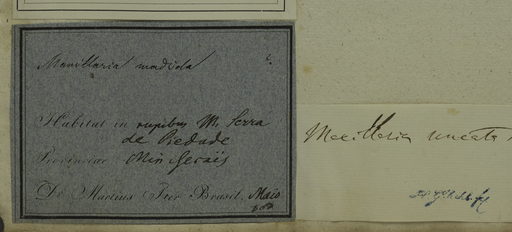 Maxillaria madida
Habitat in rupibus M. Serra
de Piedade
Provinciae Min Geraës
Dr. Martius Iter Brasil. Maio
Maxillaria uncata